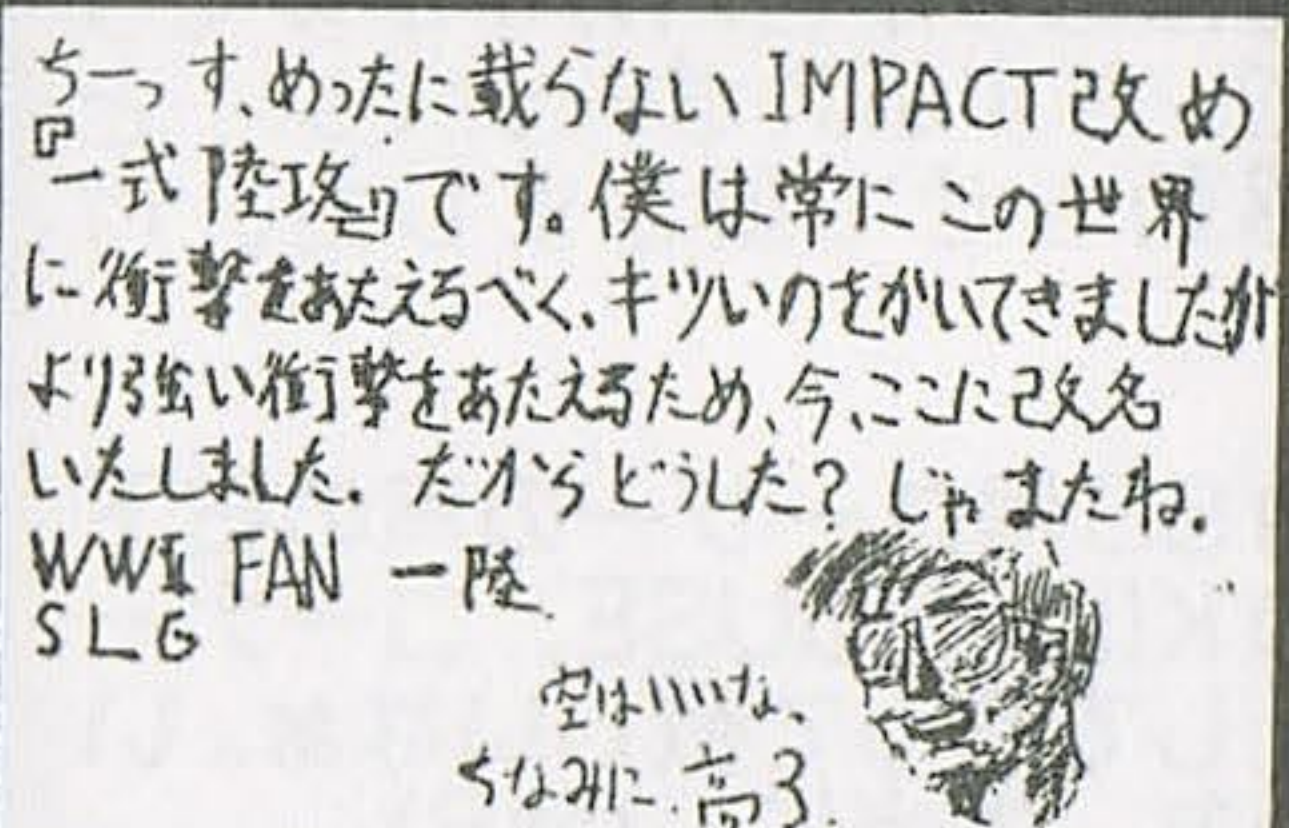 ちーっす、めったに載らないIMPACT改め
『一式陸攻』です。僕は常にこの世界
に衝撃をあたえるべく、キツいのをかいてきましたが
より強い衝撃をあたえるため、今、ここに改名
いたしました。だからどうした?じゃまたね。
WWⅡ FAN 一陸
SLG
空はいいな、
ちなみに、高3.